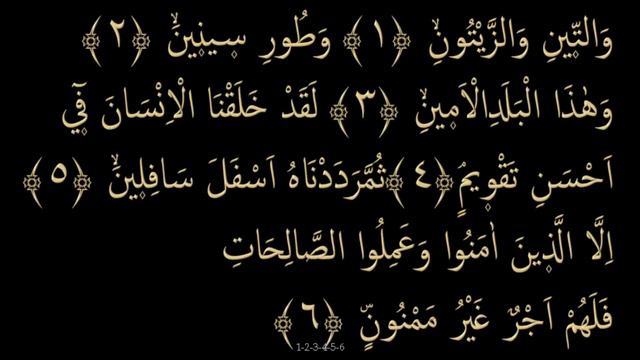 وَالتّ۪ينِ وَالزَّيْتُونِۙ ﴿١﴾ وَطُورِ س۪ين۪ينَۙ ﴿٢﴾
وَهٰذَا الْبَلَدِالْاَم۪ينِۙ ﴿٣﴾ لَقَدْ خَلَقْنَا الْاِنْسَانَ ف۪ٓي
اَحْسَنِ تَقْو۪يمٍۘ ﴿٤﴾ثُمَّرَدَدْنَاهُ اَسْفَلَ سَافِل۪ينَۙ ﴿٥﴾
اِلَّا الَّذ۪ينَ اٰمَنُوا وَعَمِلُوا الصَّالِحَاتِ
فَلَهُمْ اَجْرٌ غَيْرُ مَمْنُونٍۜ ﴿٦﴾
1-2-3-4-5-6